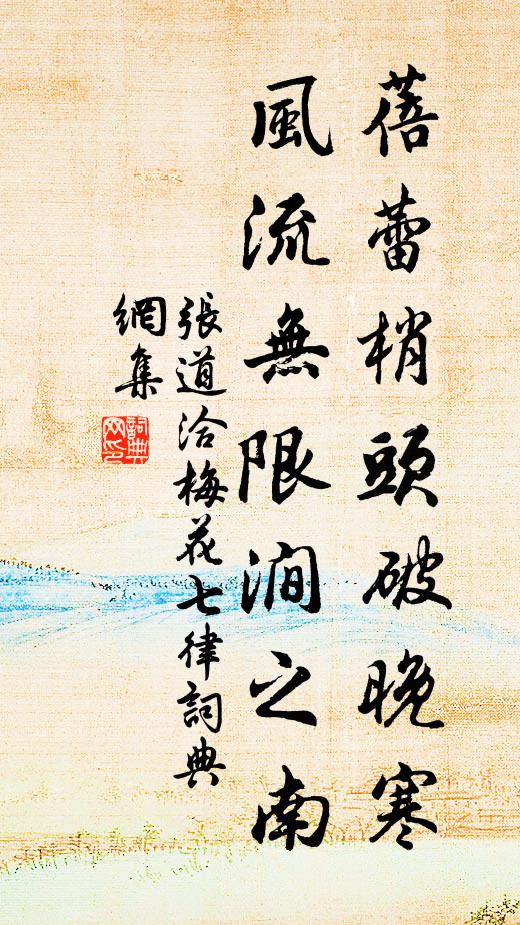 蓓蕾梢頭破晚寒
風流無限澗之南
張道洽梅花七律詞典
網集
詞典
网印